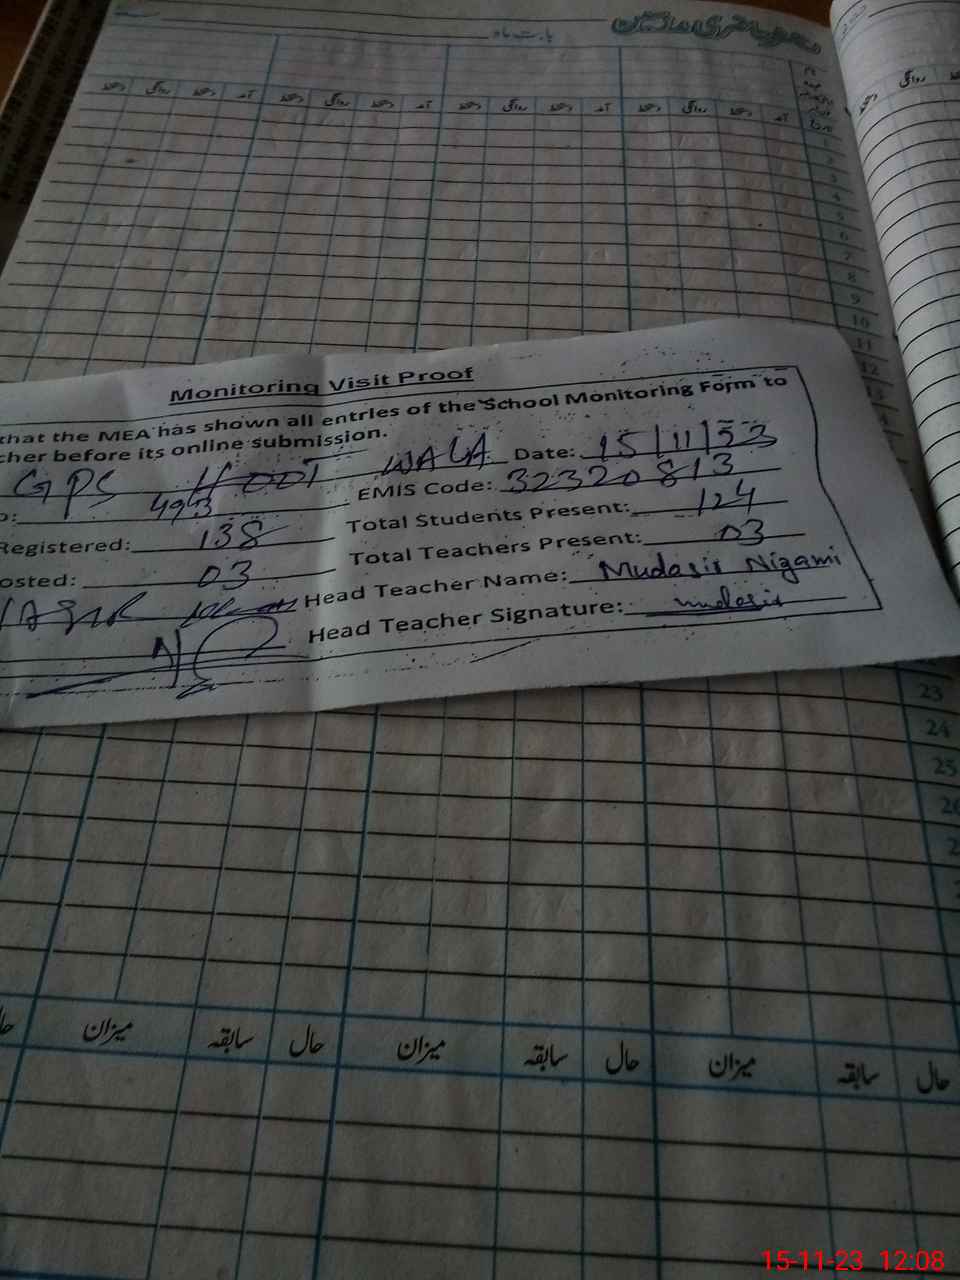 بابت ماہ
دستخط روانگی دستخط آمد دستخط روانگی دستخط آمد دستخط روانگی دستخط آمد دستخط روانگی دستخط آمد
روانگی
1
2
3
4
5
6
7
8
9
10
11
12
13
Monitoring Visit Proof
that the MEA has shown all entries of the School Monitoring Form to
cher before its online submission.
GPS HOOT WALA Date: 15/11/23
o: 493 EMIS Code: 32320813
Registered: 138 Total Students Present: 124
osted: 03 Total Teachers Present: 03
Head Teacher Name: Mudasir Nizami
Head Teacher Signature: mudasir
23
24
25
حال سابقہ میزان حال سابقہ میزان حال سابقہ میزان حال
15-11-23 12:08